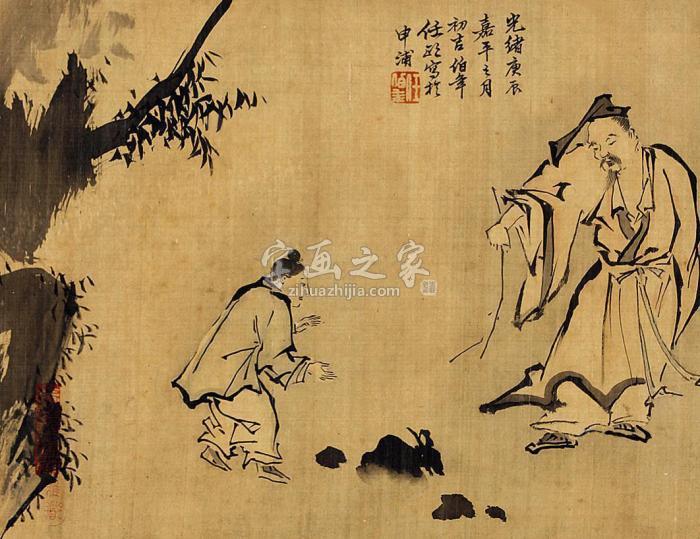 光緒庚辰
嘉平之月
初吉伯年
任頤寫於
申浦
字画之家
zihuazhijia.com